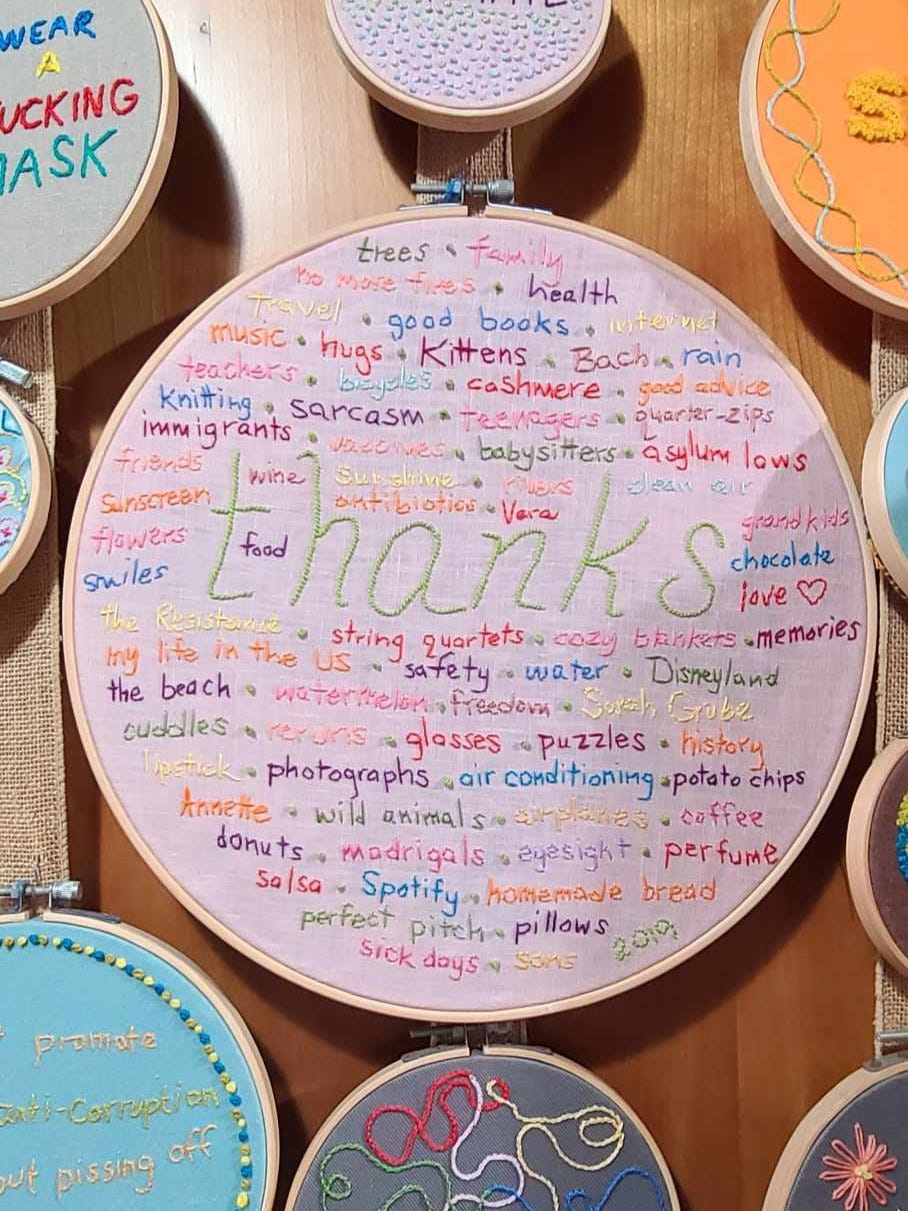 WEAR
A
FUCKING
MASK
S
trees • family
no more fires • health
Travel • good books • internet
music • hugs • Kittens • Bach • rain
teachers • bicycles • cashmere • good advice
Knitting • sarcasm • teenagers • quarter-zips
immigrants • vaccines • babysitters • asylum laws
friends wine Sunshine • rivers clean air
Sunscreen antibiotics • Vera grandkids
flowers food thanks chocolate
smiles love ♡
the Resistance • string quartets • cozy blankets • memories
my life in the US • safety • water • Disneyland
the beach • watermelon • freedom • Sarah Grube
cuddles • reruns • glasses • puzzles • history
lipstick • photographs • air conditioning • potato chips
Annette • wild animals • airplanes • coffee
donuts • madrigals • eyesight • perfume
salsa • Spotify • homemade bread
perfect pitch • pillows 2019
sick days • sons
promote
anti-Corruption
out pissing off